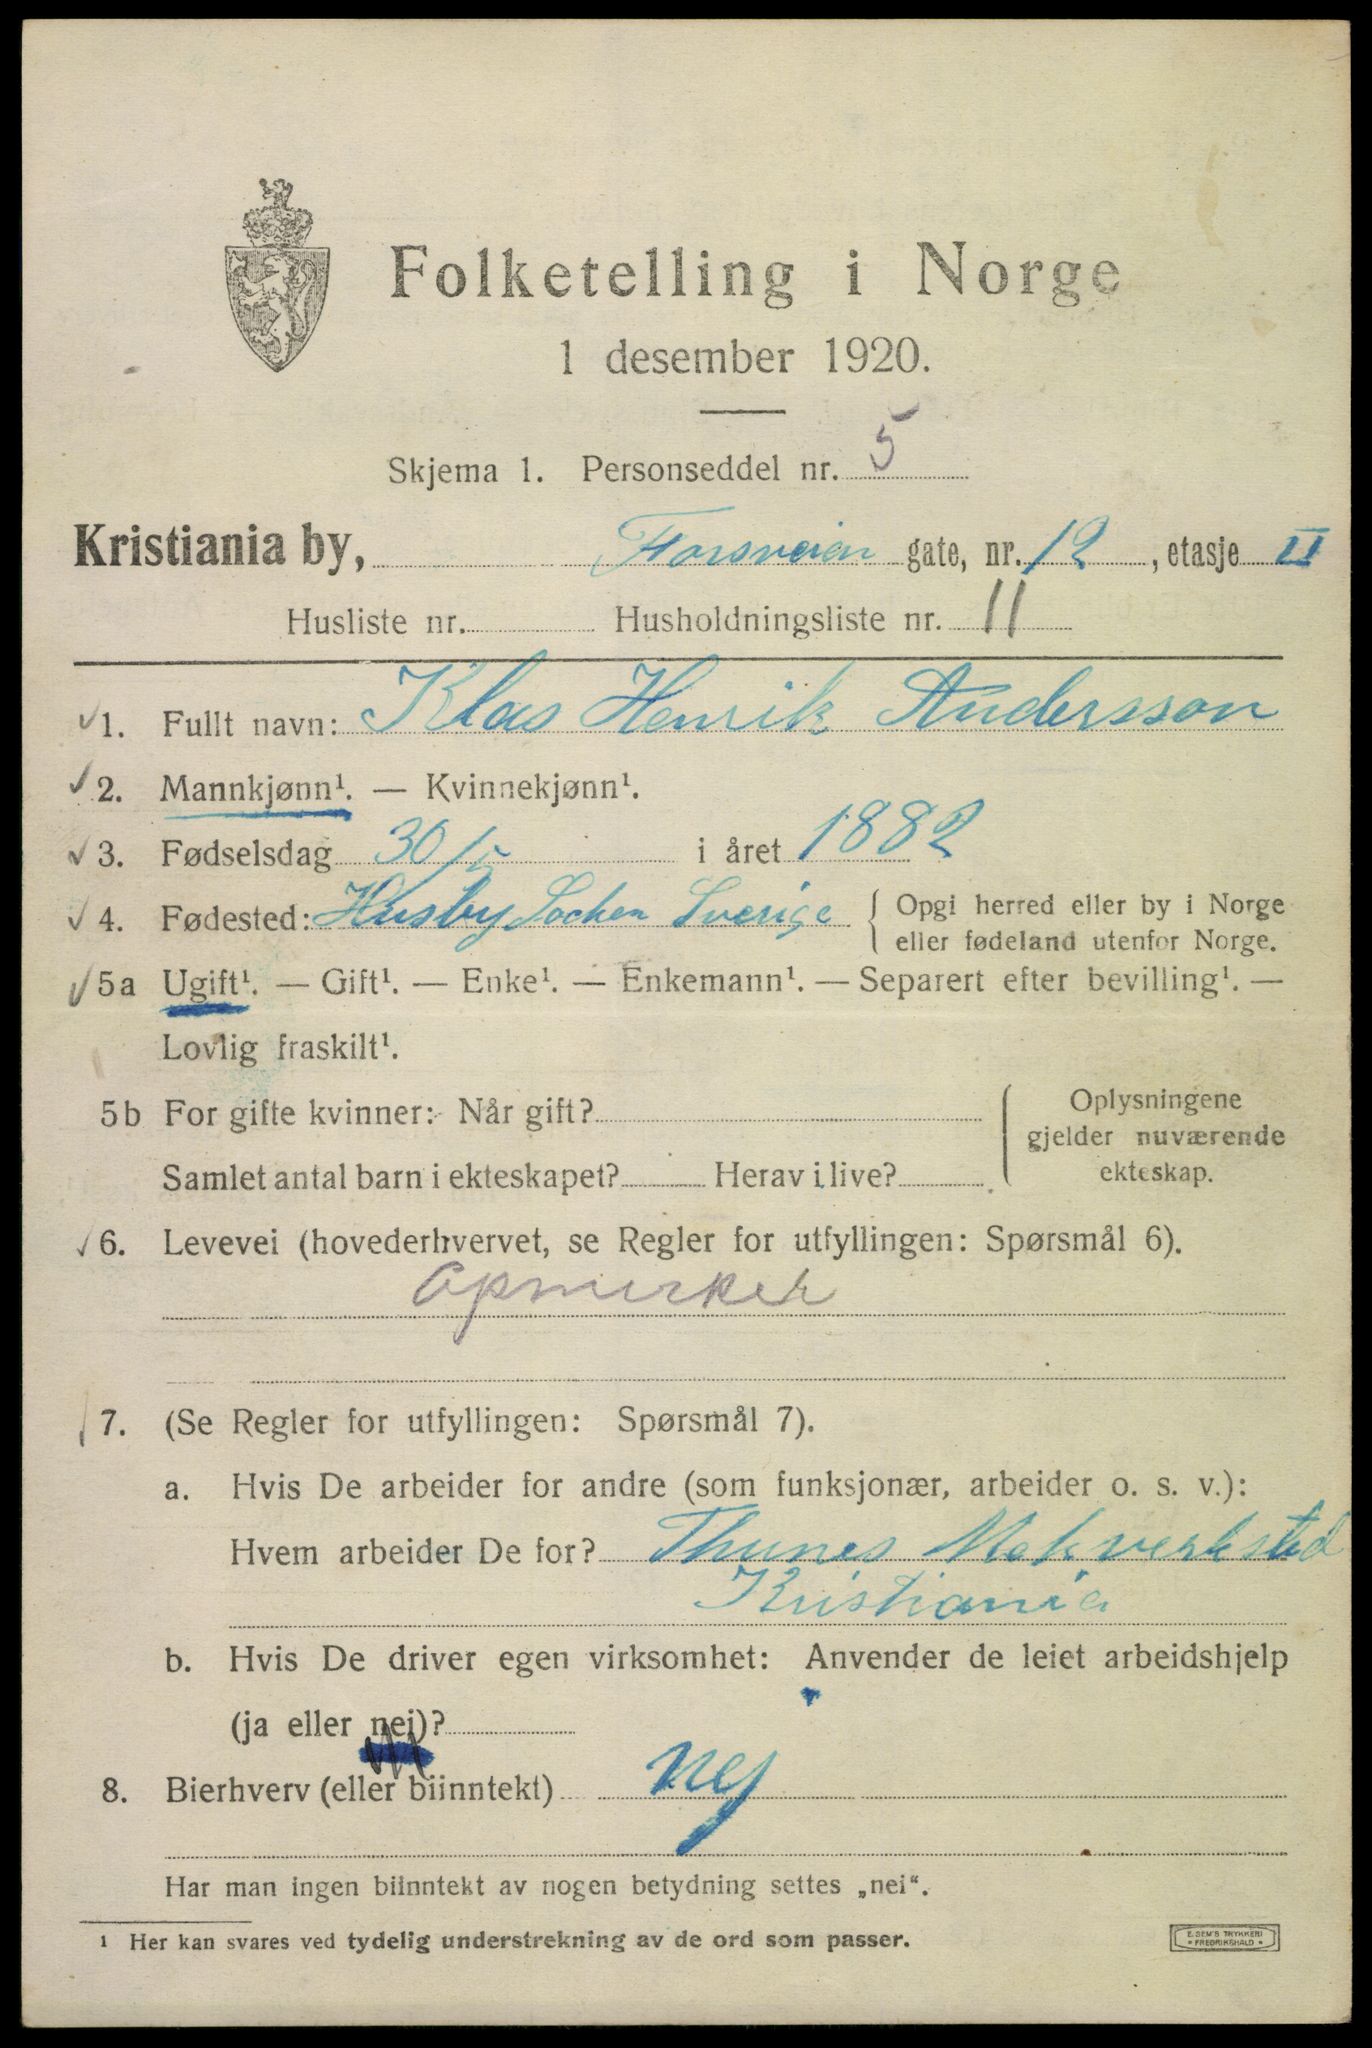 Folketelling i Norge
1 desember 1920.
Skjema 1. Personseddel nr. 5
Kristiania by, Forsveien gate, nr. 12, etasje II
Husliste nr. Husholdningsliste nr. 11
1. Fullt navn: Klas Henrik Andersson
2. Mannkjønn¹. — Kvinnekjønn¹.
3. Fødselsdag 30/5 i året 1882
4. Fødested: Husby Socken Sverige { Opgi herred eller by i Norge
eller fødeland utenfor Norge.
5a Ugift¹. — Gift¹. — Enke¹. — Enkemann¹. — Separert efter bevilling¹. —
Lovlig fraskilt¹.
5b For gifte kvinner: Når gift?
Samlet antal barn i ekteskapet? Herav i live?
{ Oplysningene
gjelder nuværende
ekteskap.
6. Levevei (hovederhvervet, se Regler for utfyllingen: Spørsmål 6).
Opmerker
7. (Se Regler for utfyllingen: Spørsmål 7).
a. Hvis De arbeider for andre (som funksjonær, arbeider o. s. v.):
Hvem arbeider De for? Thunes Mekverksted
Kristiania
b. Hvis De driver egen virksomhet: Anvender de leiet arbeidshjelp
(ja eller nei)?
8. Bierhverv (eller biinntekt) nej
Har man ingen biinntekt av nogen betydning settes „nei“.
¹ Her kan svares ved tydelig understrekning av de ord som passer.
E. SEM'S TRYKKERI
* FREDRIKSHALD *